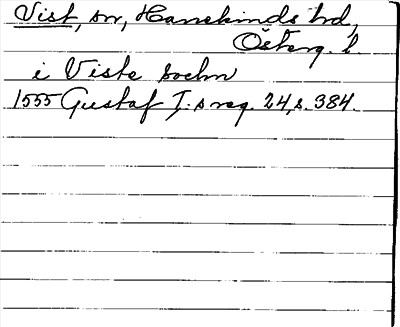 Vist, sn, Hanekinds hd,
Österg. l.
i Viste sochn
1555 Gustaf I:s reg. 24, s. 384.